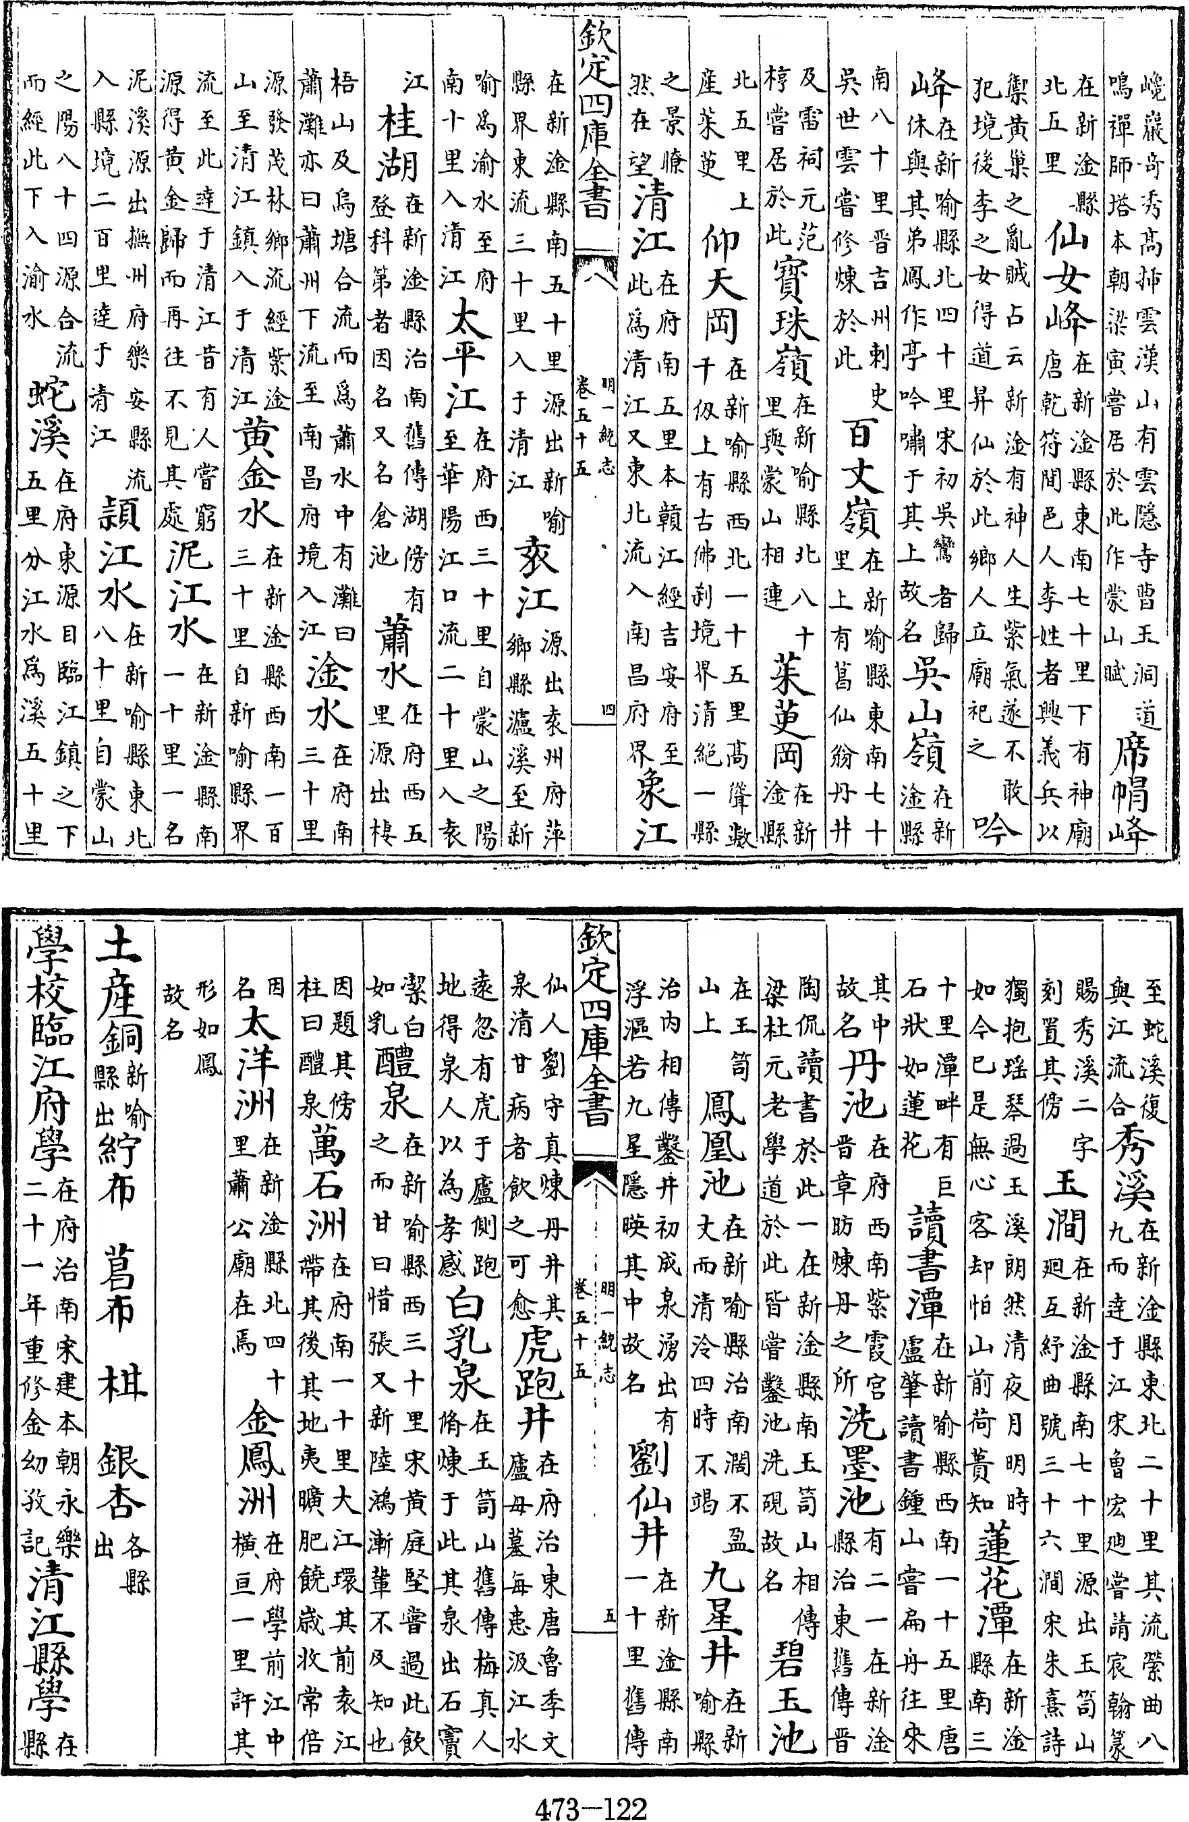 巉巖奇秀髙揷雲漢山有雲隱寺曹王洞道鳴禪師塔本朝梁寅嘗居於此作蒙山賦 席帽峰
在新淦縣北五里 仙女峰 在新淦縣東南七十里下有神廟唐乾符間邑人李姓者興義兵以
禦黄巢之亂賊占云新淦有神人生紫氣遂不敢犯境後李之女得道昇仙於此鄉人立廟祀之 吟
峰 在新喻縣北四十里宋初吳鸞者歸休與其弟鳳作亭吟嘯于其上故名 吳山嶺 在新淦縣
南八十里晋吉州刺史吳世雲嘗修煉於此 百丈嶺 在新喻縣東南七十里上有葛仙翁丹井
及雷祠元范梈嘗居於此 寶珠嶺 在新喻縣北八十里與蒙山相連 茱萸岡 在新淦縣
北五里上産茱萸 仰天岡 在新喻縣西北一十五里髙聳數千仭上有古佛刹境界清絶一縣
之景瞭然在望 清江 在府南五里本贑江經吉安府至此為清江又東北流入南昌府界 象江
欽定四庫全書 明一統志 卷五十五 四
在新淦縣南五十里源出新喻縣界東流三十里入于清江 袁江 源出袁州府萍鄉縣瀘溪至新
喻為渝水至府南十里入清江 太平江 在府西三十里自蒙山之陽至華陽江口流二十里入袁
江 桂湖 在新淦縣治南舊傳湖傍有登科第者因名又名倉池 蕭水 在府西五里源出棲
梧山及烏塘合流而為蕭水中有灘曰蕭灘亦曰蕭州下流至南昌府境入江 淦水 在府南三十里
源發茂林鄉流經紫淦山至清江鎮入于清江 黄金水 在新淦縣西南一百三十里自新喻縣界
流至此逹于清江昔有人嘗窮源得黄金歸而再往不見其處 泥江水 在新淦縣南一十里一名
泥溪源出撫州府樂安縣流入縣境二百里逹于清江 頴江水 在新喻縣東北八十里自蒙山
之陽八十四源合流而經此下入渝水 蛇溪 在府東源目臨江鎮之下五里分江水為溪五十里
至蛇溪復與江流合 秀溪 在新淦縣東北二十里其流縈曲八九而逹于江宋魯宏迪嘗請宸翰篆
賜秀溪二字刻置其傍 玉澗 在新淦縣南七十里源出玉笥山廻互紓曲號三十六澗宋朱熹詩
獨抱瑶琴過玉溪朗然清夜月明時如今已是無心客却怕山前荷蕢知 蓮花潭 在新淦縣南三
十里潭畔有巨石狀如蓮花 讀書潭 在新喻縣西南一十五里唐盧肇讀書鍾山嘗扁舟往來
其中故名 丹池 在府西南紫霞宫晋章昉煉丹之所 洗墨池 有二一在新淦縣治東舊傳晋
陶侃讀書於此一在新淦縣南玉笥山相傳梁杜元老學道於此皆嘗鑿池洗硯故名 碧玉池
在玉笥山上 鳳凰池 在新喻縣治南濶不盈丈而清泠四時不竭 九星井 在新喻縣
治内相傳鑿井初成泉湧出有浮漚若九星隱暎其中故名 劉仙井 在新淦縣南一十里舊傳
欽定四庫全書 明一統志 卷五十五 五
仙人劉守真煉丹井其泉清甘病者飲之可愈 虎跑井 在府治東唐魯季文廬母墓每恚汲江水
遠忽有虎于廬側跑地得泉人以為孝感 白乳泉 在玉笥山舊傳梅真人脩煉于此其泉出石竇
潔白如乳 醴泉 在新喻縣西三十里宋黄庭堅嘗過此飲之而甘曰惜張又新陸鴻漸輩不及知也
因題其傍柱曰醴泉 萬石洲 在府南一十里大江環其前袁江帶其後其地夷曠肥饒嵗收常倍
因名 太洋洲 在新淦縣北四十里蕭公廟在焉 金鳳洲 在府學前江中橫亘一里許其
形如鳳故名
土産 銅 新喻縣出 紵布 葛布 柑 銀杏 各縣出
學校 臨江府學 在府治南宋建本朝永樂二十一年重修金幼孜記 清江縣學 在縣
473—122